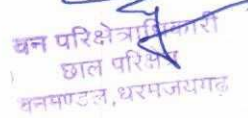 वन परिक्षेत्राधिकारी
छाल परिक्षेत्र
वनमण्डल, धरमजयगढ़